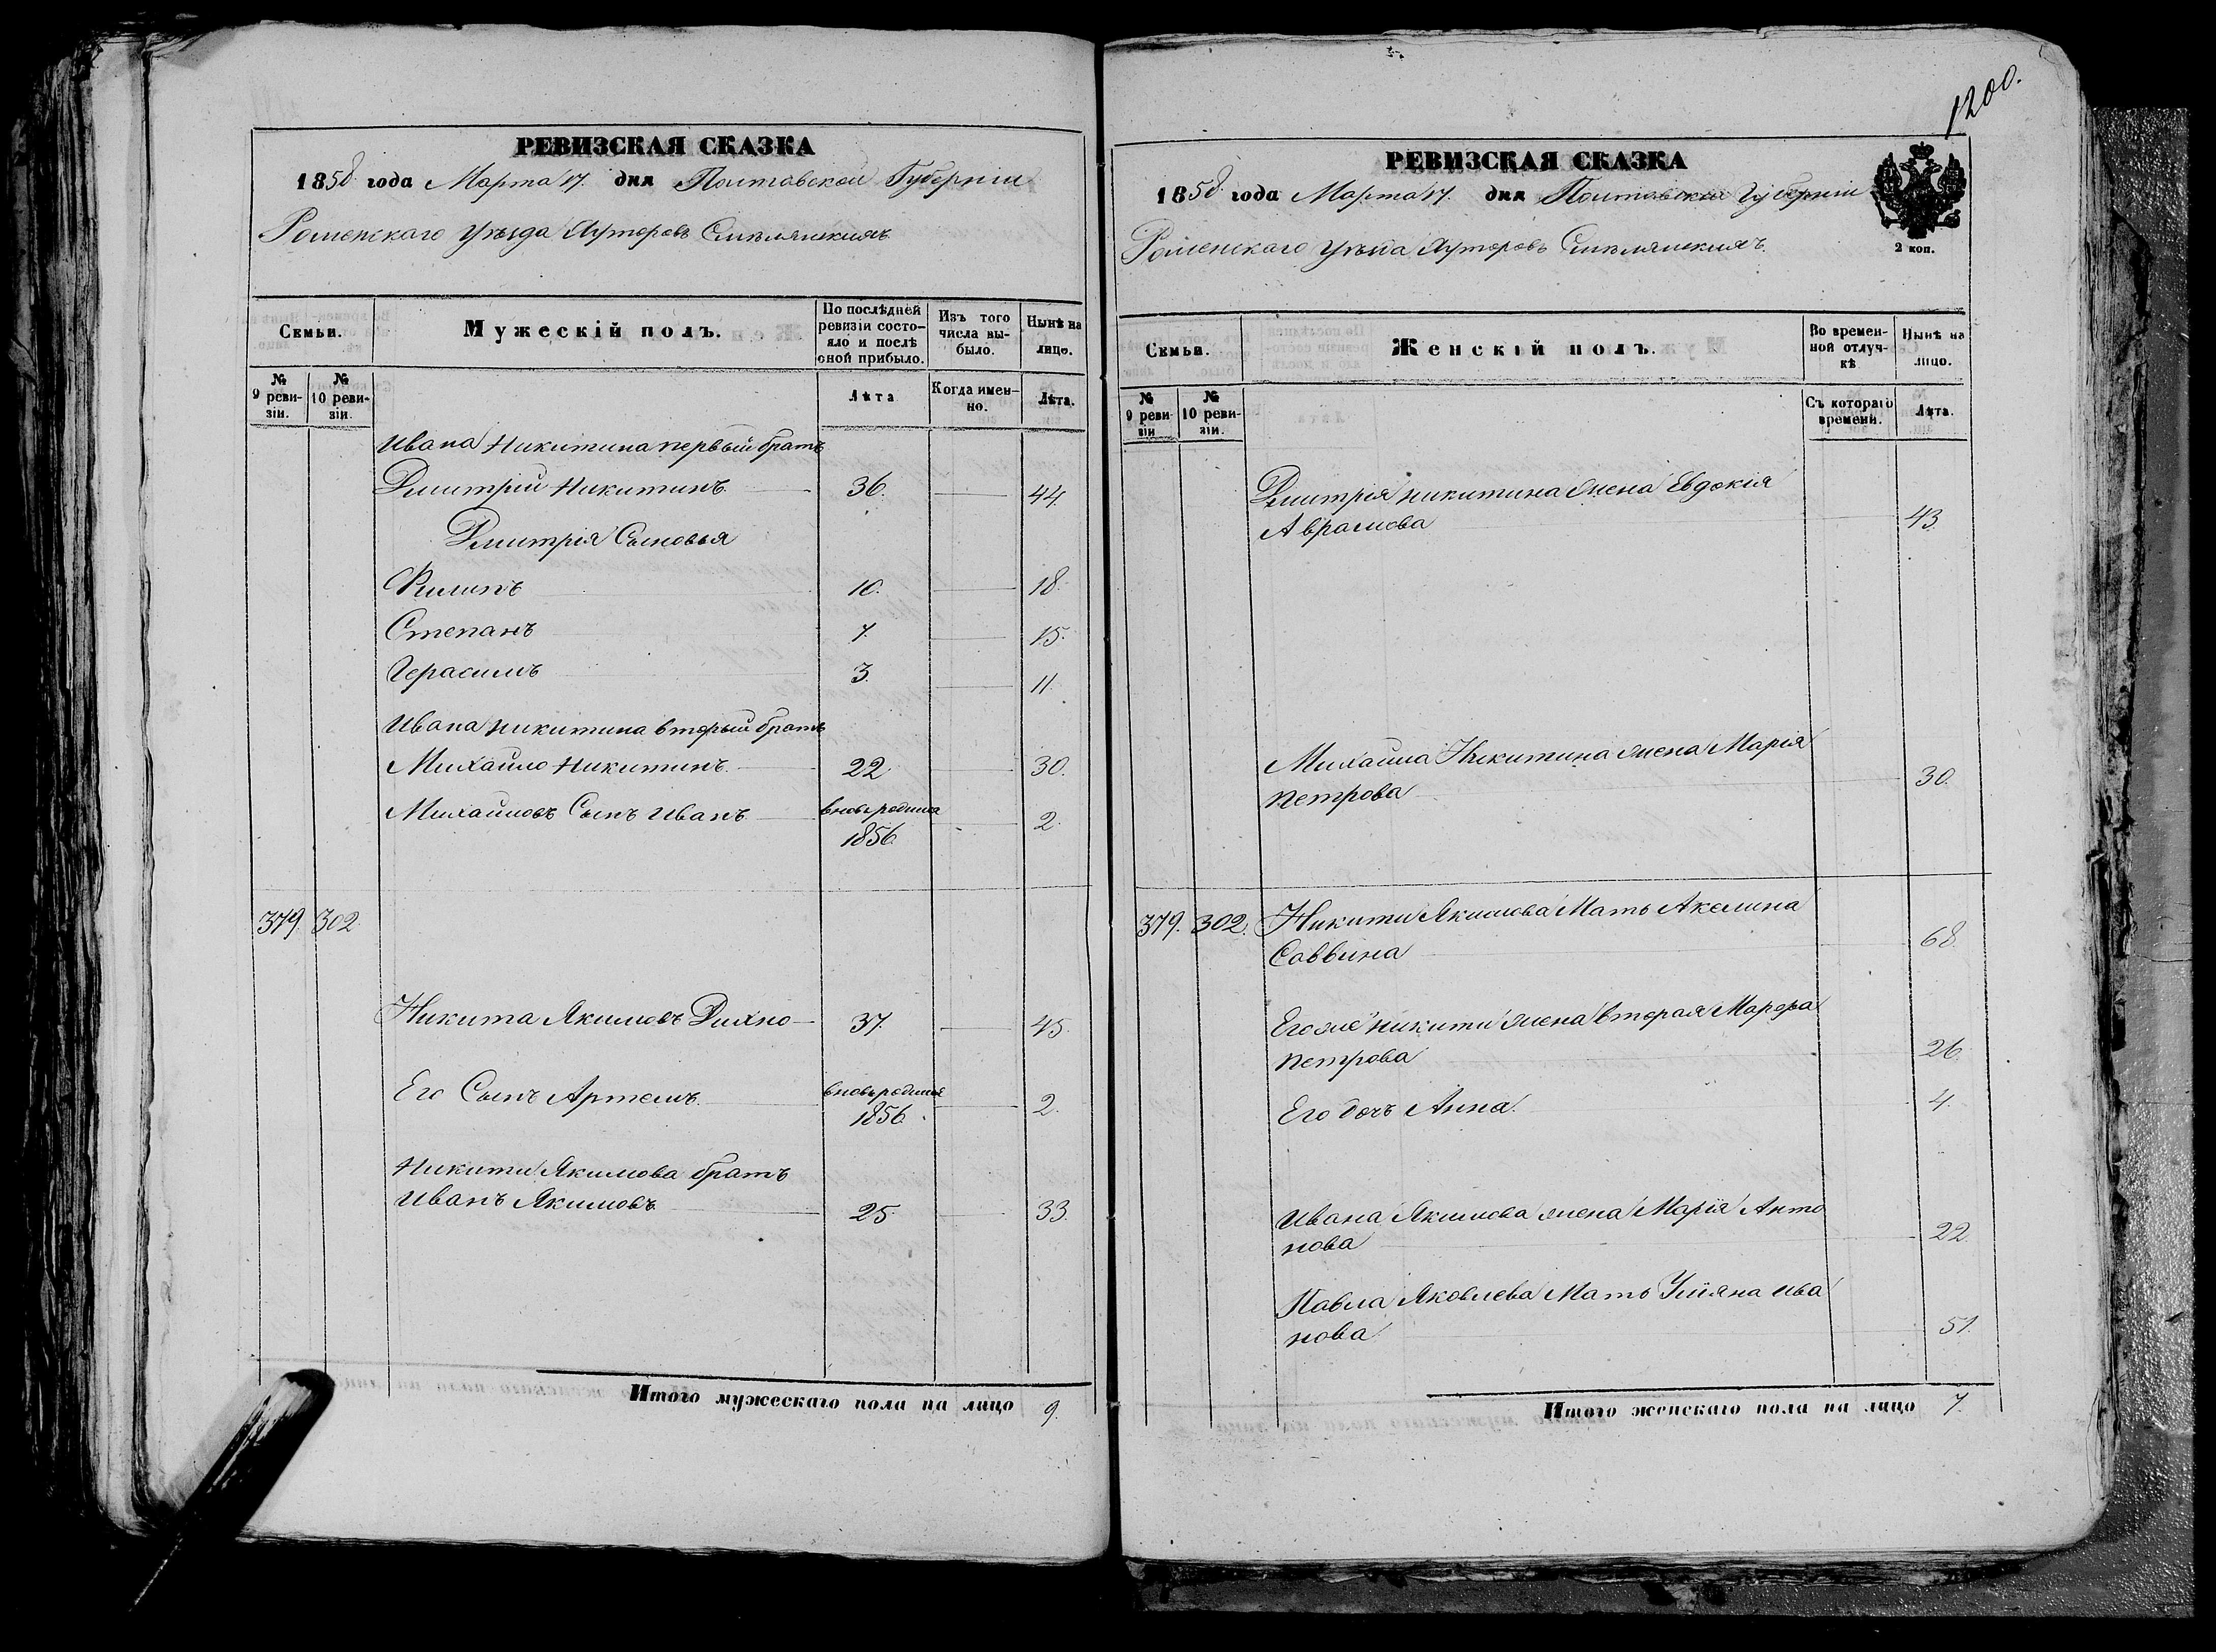 1200.
РЕВИЗСКАЯ СКАЗКА
1858 года Марта 17. дня Полтавской Губерніи
Роменского Уѣзда Хуторовъ
Семьи.
Мужескій полъ.
По послѣдней ревизіи состояло и послѣ оной прибыло.
Изъ того числа выбыло.
Нынѣ на лицо.
№ 9 ревизіи.
№ 10 ревизіи.
Лѣта
Когда именно.
Лѣта.
Ивана Никитина первый братъ
Дмитрий Никитинъ. 36. 44.
Дмитрія Сыновья
Филипъ 10. 18.
Степанъ 7. 15.
Герасимъ 3. 11.
Ивана Никитина вторый братъ
Михайло Никитинъ. 22 30.
Михайловъ Сынъ Иванъ вновьродился 2.
1856.
379. 302
Никита Якимовъ Дихно 37. 45.
Его Сынъ Артемъ. вновьродился 2.
1856.
Никиты Якимова братъ
Иванъ Якимовъ 25. 33.
Итого мужескаго пола на лицо 9.
РЕВИЗСКАЯ СКАЗКА
1858 года Марта 17. дня Полтавской Губерніи
Роменского Уѣзда Хуторовъ
2 коп.
Семьи.
Женскій полъ.
Во временной отлучкѣ
Нынѣ на лицо.
№ 9 ревизіи
№ 10 ревизіи.
Съ котораго времени.
Лѣта.
Дмитрія никитина жена Евдокія
Аврамова 43.
Михайла Никитина жена Марія
петрова 30.
379. 302. Никиты Якимова Мать Акелина
Саввина 68.
Егоже никиты жена вторая Марфа
петрова 26.
Его дочь Анна. 4.
Ивана Якимова жена Марія Анто
нова 22.
Павла Яковлева Мать Уліяна ива
нова 51.
Итого женскаго пола на лицо 7.